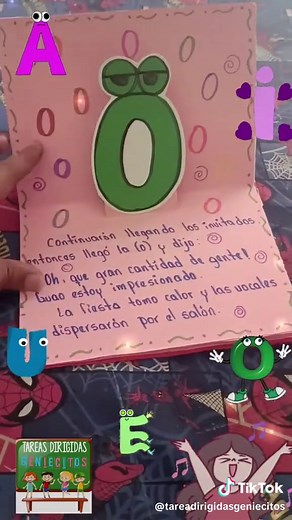 A
i
O
Continuarón llegando los invitados
entonces llegó la (o) y dijo:
Oh, que gran cantidad de gente!
Guao estoy impresionado.
La fiesta tomo calor y las vocales
dispersarón por el salón.
U
O
E
TAREAS DIRIGIDAS
GENIECITOS
TikTok
@tareadirigidasgeniecitos